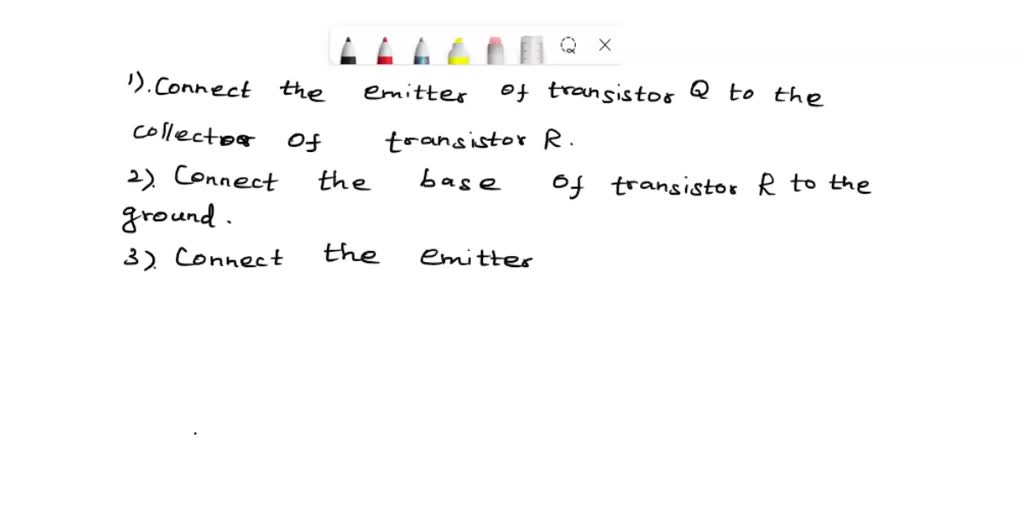 1). Connect the emitter of transistor Q to the
collector of transistor R.
2). Connect the base of transistor R to the
ground.
3). Connect the emitter